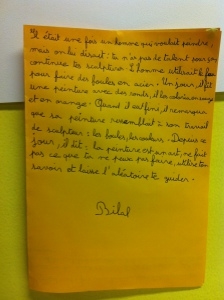 Il était une fois un homme qui voulait peindre,
mais on lui disait : tu n'as pas de talent pour ça,
continue ta sculpture. L'homme utilisait le feu
pour faire des boules en acier. Un jour, il fit
une peinture avec des ronds, il les coloria en rouge
et en orange. Quand il eut fini, il remarqua
que sa peinture ressemblait à son travail
de sculpteur : les boules, les couleurs. Depuis ce
jour, il dit : la peinture est un art, ne fait
pas ce que tu ne peux pas faire, utilise ton
savoir et laisse l'aléatoire te guider.
Bilal